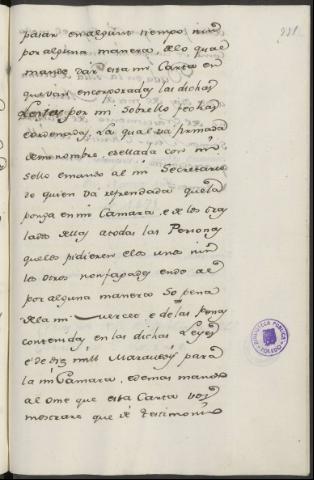 pasar en algunt tiempo nin
por alguna manera, de lo qual
mande dar esta mi Carta en
que van encorporadas las dichas
Leyes por mi sobrello fechas
e ordenadas, la qual va firmada
de mi nombre, e sellada con mi
sello e mando al mi Secretario
de quien va refrendada que la
ponga en mi Camara, e dé los tras
lados dellas a todas las Personas
que los pidieren e los unos nin
los otros non fagades ende al
por alguna manera So pena
de la mi merced e de las penas
contenidas en las dichas Leyes
e de diez mill Maravedis para
la mi Camara, e demas mando
al ome que esta Carta vos
mostrare que dé testimonio
231
BIBLIOTECA PUBLICA
TOLEDO